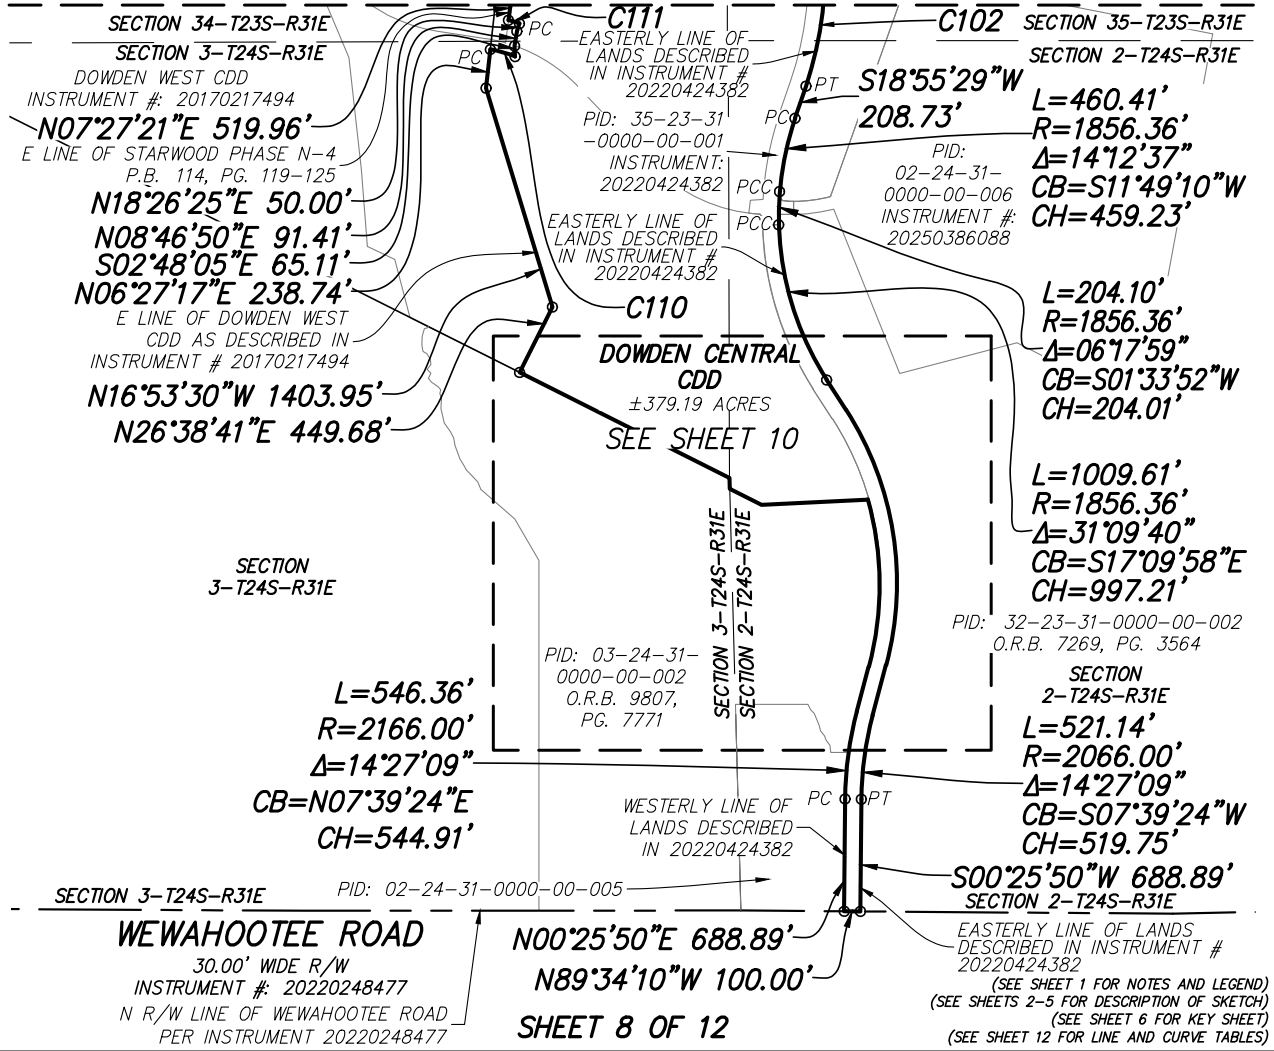 SECTION 34-T23S-R31E
SECTION 3-T24S-R31E
DOWDEN WEST CDD
INSTRUMENT #: 20170217494
N07°27'21"E 519.96'
E LINE OF STARWOOD PHASE N-4
P.B. 114, PG. 119-125
N18°26'25"E 50.00'
N08°46'50"E 91.41'
S02°48'05"E 65.11'
N06°27'17"E 238.74'
E LINE OF DOWDEN WEST
CDD AS DESCRIBED IN
INSTRUMENT # 20170217494
N16°53'30"W 1403.95'
N26°38'41"E 449.68'
PC
PC
C111
EASTERLY LINE OF
LANDS DESCRIBED
IN INSTRUMENT #
20220424382
PID: 35-23-31
-0000-00-001
INSTRUMENT:
20220424382
EASTERLY LINE OF
LANDS DESCRIBED
IN INSTRUMENT #
20220424382
C110
C102
SECTION 35-T23S-R31E
SECTION 2-T24S-R31E
PT
S18°55'29"W
208.73'
PC
PCC
PCC
PID:
02-24-31-
0000-00-006
INSTRUMENT #:
20250386088
L=460.41'
R=1856.36'
Δ=14°12'37"
CB=S11°49'10"W
CH=459.23'
L=204.10'
R=1856.36'
Δ=06°17'59"
CB=S01°33'52"W
CH=204.01'
DOWDEN CENTRAL
CDD
±379.19 ACRES
SEE SHEET 10
L=1009.61'
R=1856.36'
Δ=31°09'40"
CB=S17°09'58"E
CH=997.21'
SECTION
3-T24S-R31E
SECTION 3-T24S-R31E
SECTION 2-T24S-R31E
PID: 32-23-31-0000-00-002
O.R.B. 7269, PG. 3564
SECTION
2-T24S-R31E
PID: 03-24-31-
0000-00-002
O.R.B. 9807,
PG. 7771
L=546.36'
R=2166.00'
Δ=14°27'09"
CB=N07°39'24"E
CH=544.91'
L=521.14'
R=2066.00'
Δ=14°27'09"
CB=S07°39'24"W
CH=519.75'
PC
PT
WESTERLY LINE OF
LANDS DESCRIBED
IN 20220424382
S00°25'50"W 688.89'
SECTION 3-T24S-R31E
PID: 02-24-31-0000-00-005
SECTION 2-T24S-R31E
WEWAHOOTEE ROAD
30.00' WIDE R/W
INSTRUMENT #: 20220248477
N R/W LINE OF WEWAHOOTEE ROAD
PER INSTRUMENT 20220248477
N00°25'50"E 688.89'
N89°34'10"W 100.00'
SHEET 8 OF 12
EASTERLY LINE OF LANDS
DESCRIBED IN INSTRUMENT #
20220424382
(SEE SHEET 1 FOR NOTES AND LEGEND)
(SEE SHEETS 2-5 FOR DESCRIPTION OF SKETCH)
(SEE SHEET 6 FOR KEY SHEET)
(SEE SHEET 12 FOR LINE AND CURVE TABLES)